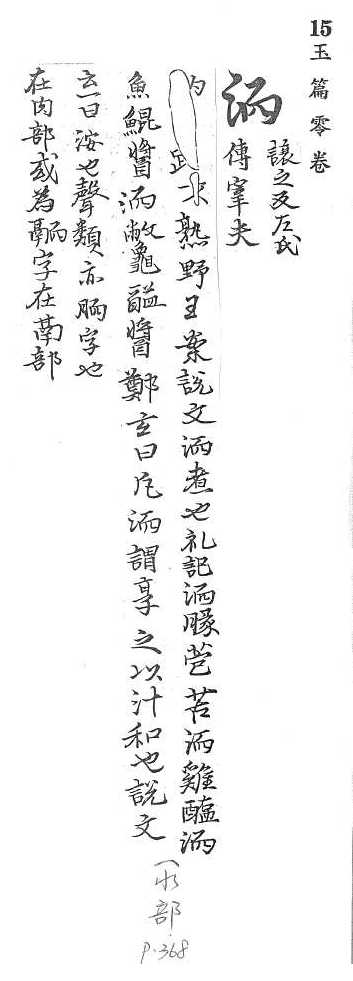 15 玉篇零卷
洏 讓之反左氏
傳宰夫
洏 熟野王案說文洏煮也礼記洏豚苞苦洏雞醢洏
魚鯤醬洏鼈醢醬鄭玄曰凡洏謂亨之以汁和也說文
一曰洝也聲類亦胹字也
在肉部或為字在部
(水部 P.368